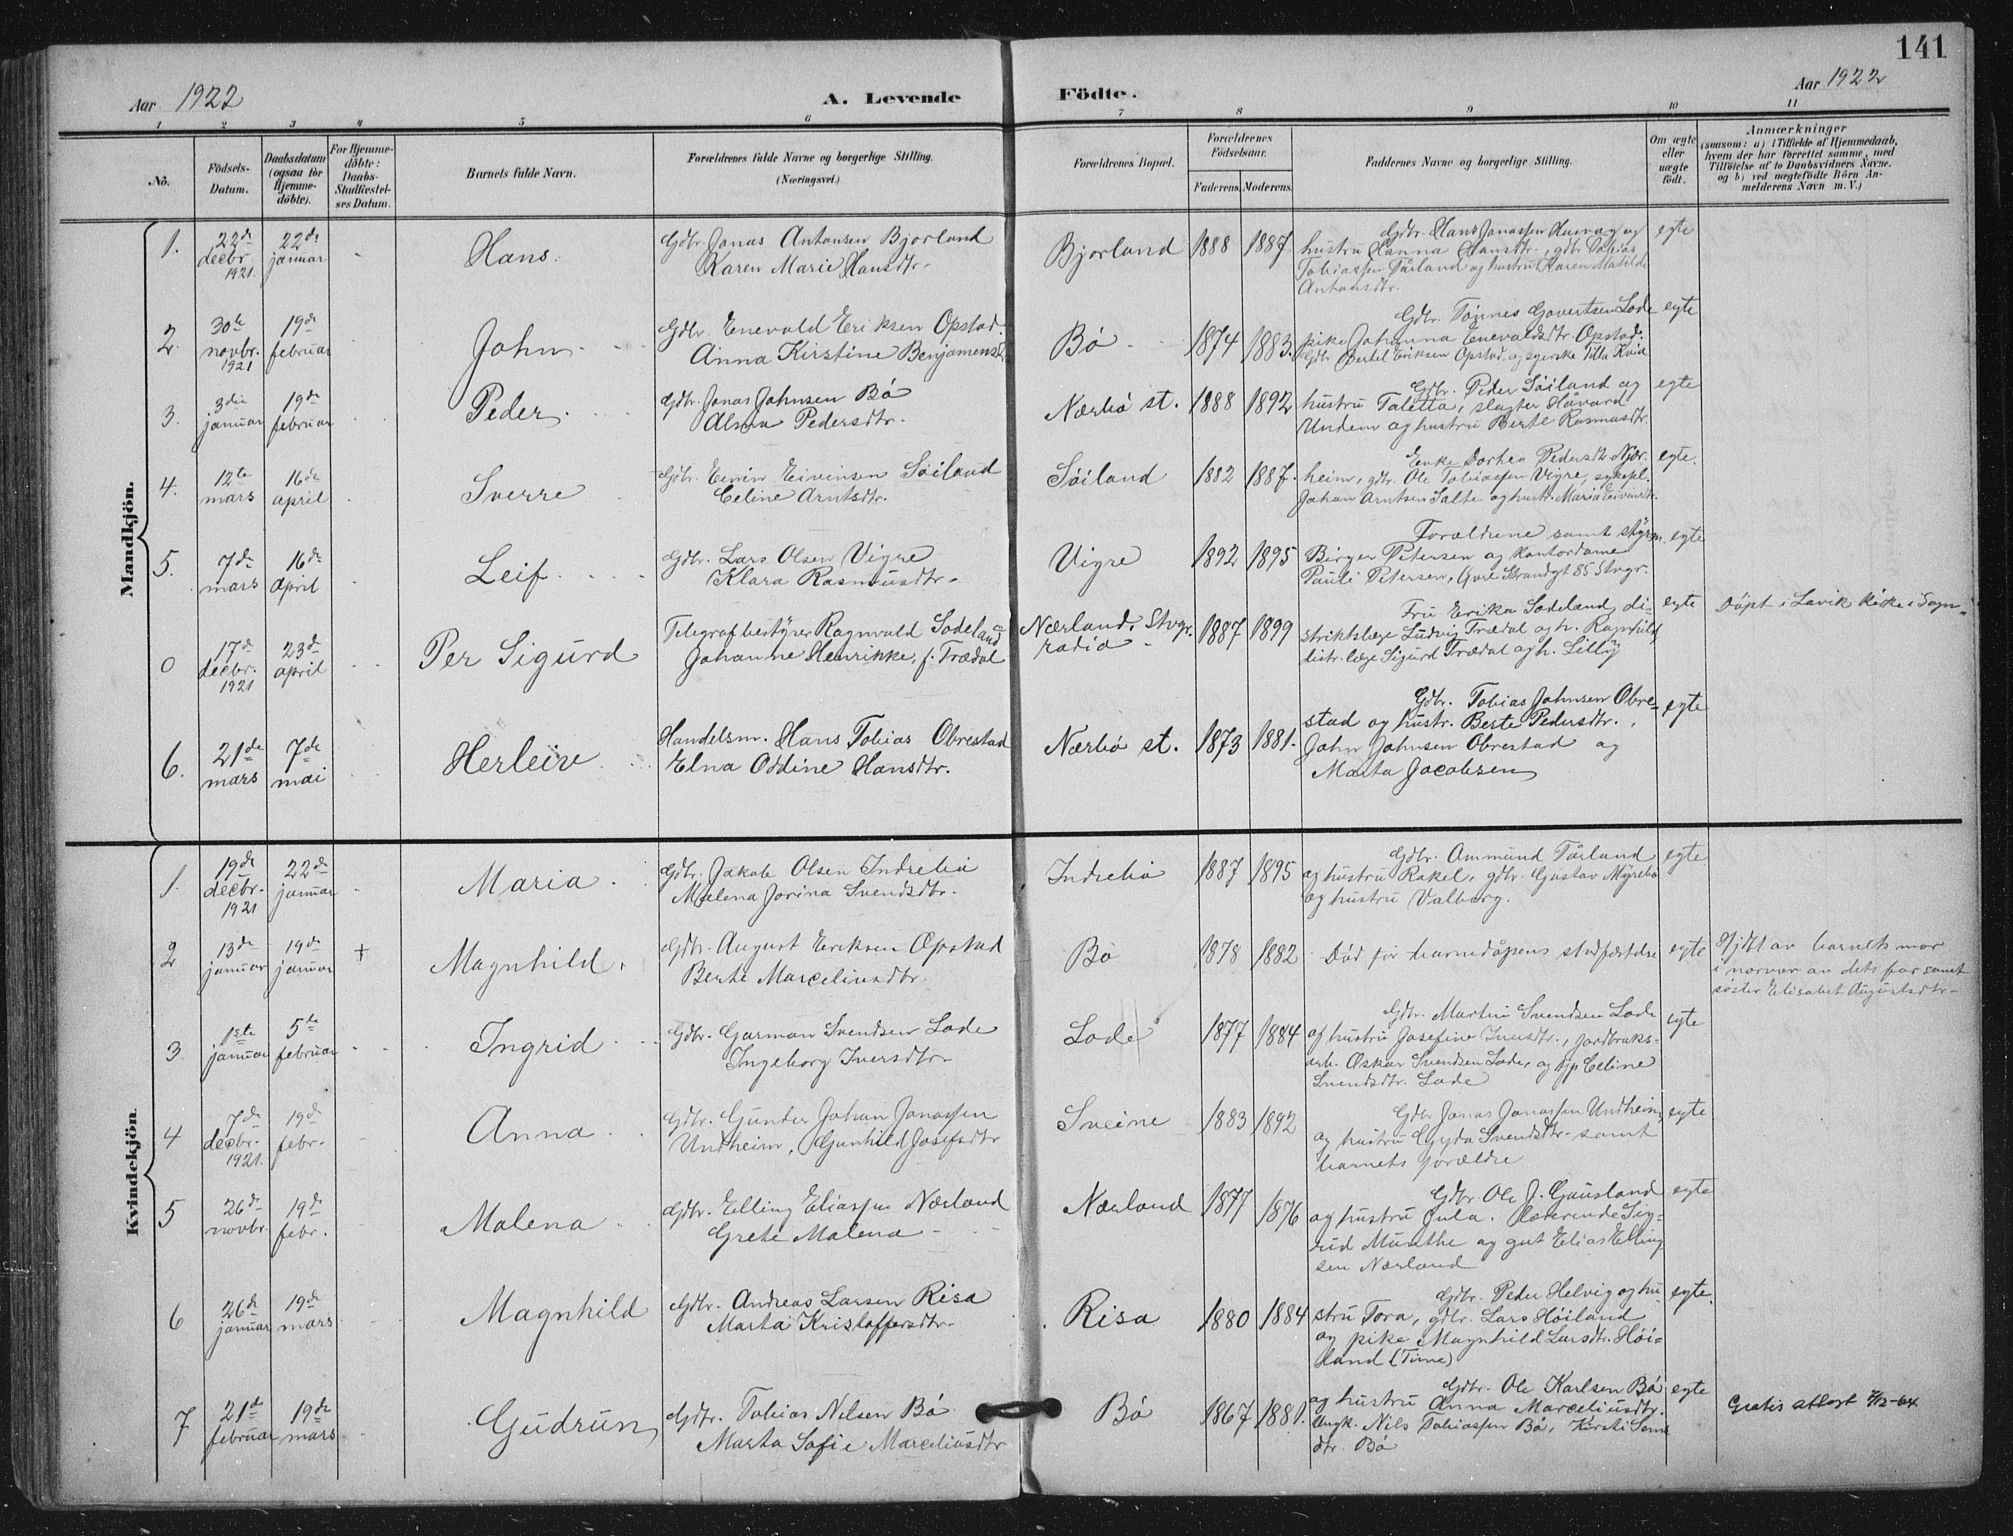 141
Aar 1922
A. Levende Födte.
Aar 1922
1 2 3 4 5 6 7 8 9 10 11
No.
Födsels-
Datum.
Daabsdatum
(ogsaa for
Hjemme-
döbte).
For Hjemme-
döbte:
Daabs-
Stadfæstel-
ses Datum.
Barnets fulde Navn.
Forældrenes fulde Navne og borgerlige Stilling.
(Næringsvei.)
Forældrenes Bopæl.
Forældrenes
Födselsaar.
Faderens. Moderens.
Faddernes Navne og borgerlige Stilling.
Om ægte
eller
uægte
født.
Anmærkninger
(saasom: a) i Tilfælde af Hjemmedaab,
hvem der har forrettet samme, med
Tilföielse af to Daabsvidners Navne,
og b) ved uægtefödte Börn An-
melderens Navn m. V.)
Mandkjön.
1.
22de
decbr.
1921
22de
januar
Hans.
Gdbr. Jonas Antonsen Bjorland
Karen Marie Hansdtr.
Bjorland
1888
1887.
Gdbr. Hans Jonassen Husvag og
hustru Hanna Hansdtr., gdbr. Tobias
Tobiassen Tårland og hustru Karen Matilde
Antonsdtr.
egte
2.
30te
novbr.
1921
19de
februar
John
Gdbr. Enevald Eriksen Opstad.
Anna Kirstine Benjamensd.
Bø
1874
1883.
Gdbr. Tønnes Govertsen Lode
pike Johanna Enevaldsdtr. Opstad.
Gdbr. Bertel Eriksen Opstad, og syerske Tilla Kvia
egte
3.
3die
januar
19de
februar
Peder.
Gdbr. Jonas Johnsen Bø
Alma Pedersdtr.
Nærbø st.
1888
1892
Gdbr. Peder Søiland og
hustru Taletta, slagter Håvard
Undem og hustru Berte Rasmusdtr.
egte
4.
12te
mars
16de
april
Sverre
Gdbr. Eivin Eivinsen Søiland
Celine Arntsdtr.
Søiland
1882
1887.
Enke Dorthea Pedersdtr. Njør-
heim, gdbr. Ole Tobiassen Vigre, sykepl.
Johan Arntsen Salte og hustr. Maria Eivinsdtr.
egte.
5.
7de
mars
16de
april
Leif
Gdbr. Lars Olsen Vigre
Klara Rasmusdtr.
Vigre
1892
1895
Forældrene samt styrm.
Birger Petersen og kontordame
Pauli Petersen, Øvre Strandgt 85 Stvgr.
egte
0
17de
decbr.
1921
23de
april
Per Sigurd
Telegrafbestyrer Ragnvald Sodeland
Johanne Henrikke, f. Trædal
Nærland, Stvgr.
radio
1887
1899
Fru Erika Sodeland, di-
striktslæge Ludvig Trædal og h. Ragnhild
distr.læge Sigurd Trædal og h. Lilly
egte
Døpt i Lavik kirke i Sogn
6.
21de
mars
7de
mai
Herleiv
Handelsm. Hans Tobias Obrestad
Elna Oddine Hansdtr.
Nærbø st.
1873
1881.
Gdbr. Tobias Johnsen Obre-
stad og hustr. Berte Pedersdtr.
John Johnsen Obrestad og
Marta Jacobsen
egte
Kvindekjön.
1.
19de
decbr.
1921
22de
januar
Maria
Gdbr. Jakob Olsen Indrebø
Malena Jorina Svendsdtr.
Indrebø
1887
1895
Gdbr. Ammund Tårland
og hustru Rakel, gdbr. Gustav Myrebø
og hustru Valborg.
egte
2
13de
januar
19de
januar
+
Magnhild
Gdbr. August Eriksen Opstad
Berte Marceliusdtr.
Bø
1878
1882
Død før barnedåpens stadfæstelse
egte
Hjdpt av barnets mor
i nærvær av dets far samt
søster Elisabet Augustsdtr.
3.
1ste
januar
5te
februar
Ingrid
Gdbr. Garman Svendsen Lode
Ingeborg Iversdtr.
Lode
1877
1884
Gdbr. Martin Svendsen Lode
og hustru Josefine Iversdtr., jordbruks-
arb. Oskar Svendsen Lode, og tjp. Celine
Svendsdtr. Lode
egte
4
7de
decbr.
1921.
19de
febr.
Anna
Gdbr. Gunder Johan Jonassen
Undheim, Gunhild Josefsdtr
Sveine
1883
1892
Gdbr Jonas Jonassen Undheim,
og hustru Gyda Svendsdtr. samt
barnets forældre
egte
5
26de
novbr.
19de
febr.
Malena
Gdbr. Elling Eliassen Nærland
Grete Malena
Nærland
1877
1876
Gdbr. Ole J. Gausland
og hustru Jula. Lærerinde Sig-
rid Munthe og gut Elias Elling
sen Nærland
egte
6
26de
januar
19de
mars
Magnhild
Gdbr. Andreas Larsen Risa
Marta Kristoffersdtr.
Risa
1880
1884
Gdbr. Peder Helvig og hu-
stru Tora, gdbr. Lars Høiland
og pike Magnhild Larsdtr. Høi-
land (Time)
egte.
7
21de
februar
19de
mars
Gudrun
Gdbr. Tobias Nilsen Bø
Marta Sofie Marceliusdtr
Bø
1867
1881.
Gdbr. Ole Karlsen Bø
og hustru Anna Marceliusdtr.
Ungk. Nils Tobiassen Bø, Kirsti
dtr. Bø
egte
Gratis attest 7/12-64